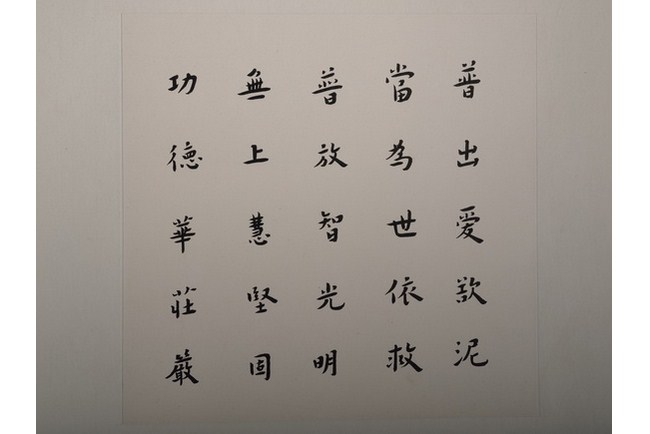 普出爱欲泥
當為世依救
普放智光明
無上慧堅固
功德華莊嚴